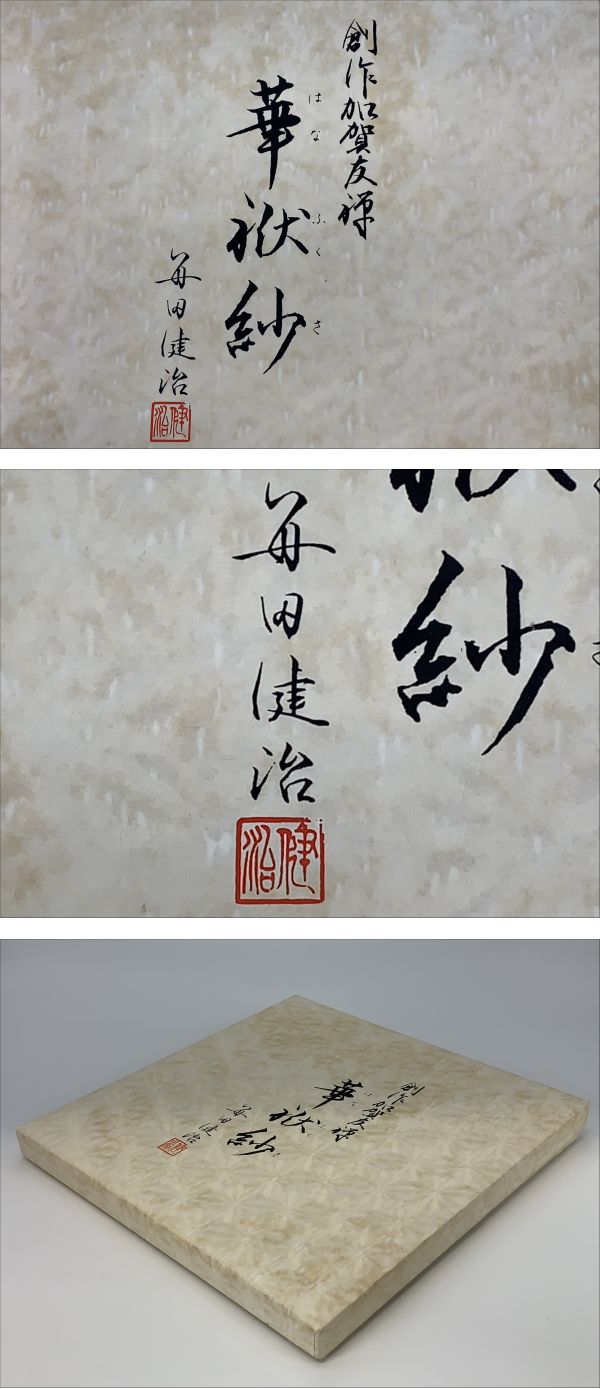 創作加賀友禅
はなふくさ
華袱紗
毎田健治
健治
紗
毎田健治
健治
創作加賀友禅
華袱紗
毎田健治
健治